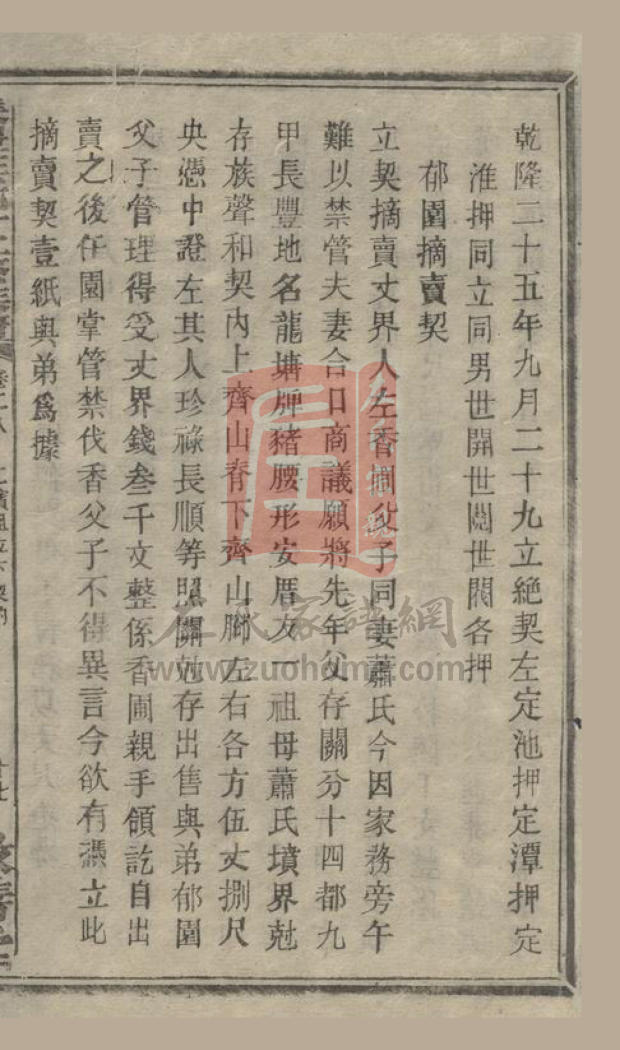 乾隆二十五年九月二十九立絶契左定池押定潭押定
淮押同立同男世開世閎世閣各押
郁園摘賣契
立契摘賣丈界人左香圃父子同妻蕭氏今因家務旁午
難以禁管夫妻合口商議願將先年父存關分十四都九
甲長豐地名龍塘牌豬腰形安厝友一祖母蕭氏墳界尅
存族聲和契內上齊山脊下齊山腳左右各方伍丈捌尺
央憑中證左其人珍祿長順等照關尅存出售與弟郁園
父子管理得受丈界錢叁千文整係香圃親手領訖自出
賣之後任園掌管禁伐香父子不得異言今欲有憑立此
摘賣契壹紙與弟爲據
名氏家譜網
www.zuohome.com